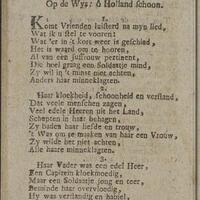 Op de Wys: ô Holland schoon.
1.
Komt Vrienden luisterd na myn lied,
Wat ik u stel te vooren!
Wat 'er in 't kort weer is geschied,
Het is waard om te hooren,
Al van een juffrouw pertinent,
Die hoel graag een Soldaatje mind,
Zy wil in 't minst niet achten,
Anders haar minneklagten.
2.
Haar kloekheid, schoonheid en verstand,
Dat veele menschen zagen,
Veel edele Heeren uit het Land,
Schepten in haar behagen,
Zy baden haar liefde en trouw,
't Was om te maken van haar een Vrouw,
Zy wilde het niet achten,
Alle haare minneklagten.
3.
Haar Vader was een edel Heer,
Een Capitein kloekmoedig,
Maar een Soldaatje jong en teer,
Beminde haar overvloedig,
Hy was verstandig en habiel,